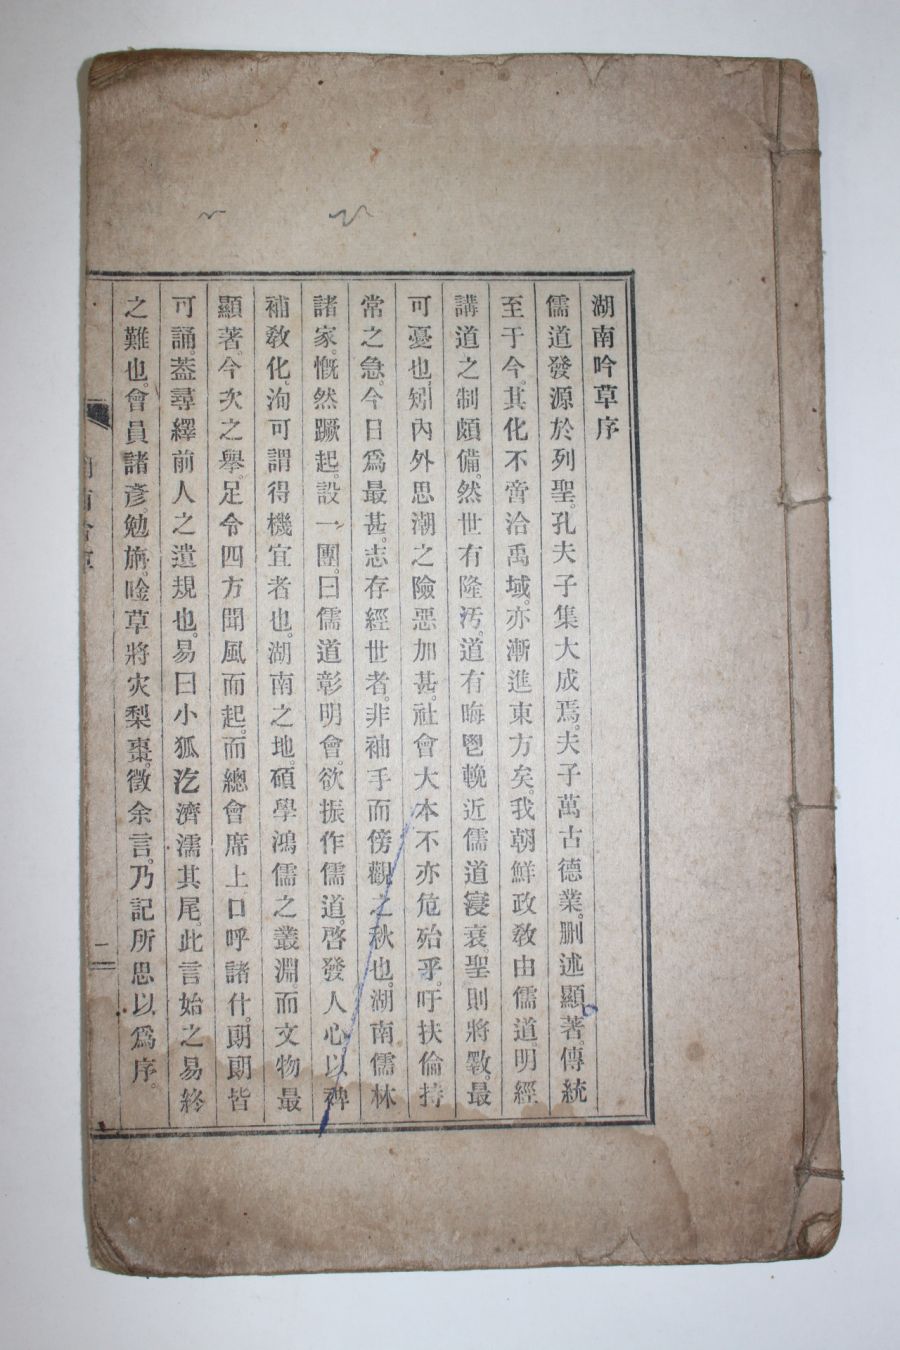 湖南吟草序
儒道發源於列聖。孔夫子集大成焉。夫子萬古德業。刪述顯著。傳統
至于今。其化不啻洽禹域。亦漸進東方矣。我朝鮮政敎由儒道。明經
講道之制頗備。然世有隆汚。道有晦鬯。輓近儒道寖衰。聖則將斁。最
可憂也。矧內外思潮之險惡加甚。社會大本不亦危殆乎。吁扶倫持
常之急。今日爲最甚。志存經世者。非袖手而傍觀之秋也。湖南儒林
諸家。慨然蹶起。設一團。曰儒道彰明會。欲振作儒道。啓發人心以裨
補敎化。洵可謂得機宜者也。湖南之地。碩學鴻儒之叢淵。而文物最
顯著。今次之擧。足令四方聞風而起。而總會席上口呼諸什。朗朗皆
可誦。蓋尋繹前人之遺規也。易曰小狐汔濟濡其尾。此言始之易終
之難也。會員諸彦。勉旃。唫草將灾梨棗。徵余言。乃記所思以爲序。
南吟草
二